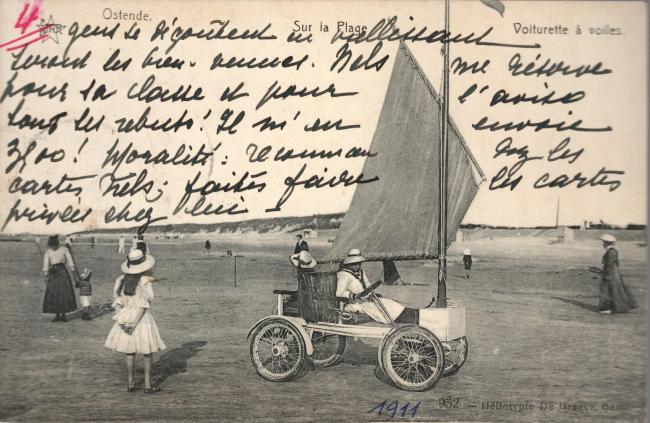 4
Ostende.
Sur la Plage
Voiturette à voiles.
gens se dégoûtent en vieillissant
seront les bien-venues. Nels me réserve
pour sa classe et pour l'aviso
tous ses rebuts! Il m'en envoie
3500! Moralité: recomman dez les
cartes Nels; faites faire les cartes
privées chez lui -
1911
952 - Héliotypie De Graeve, Gand